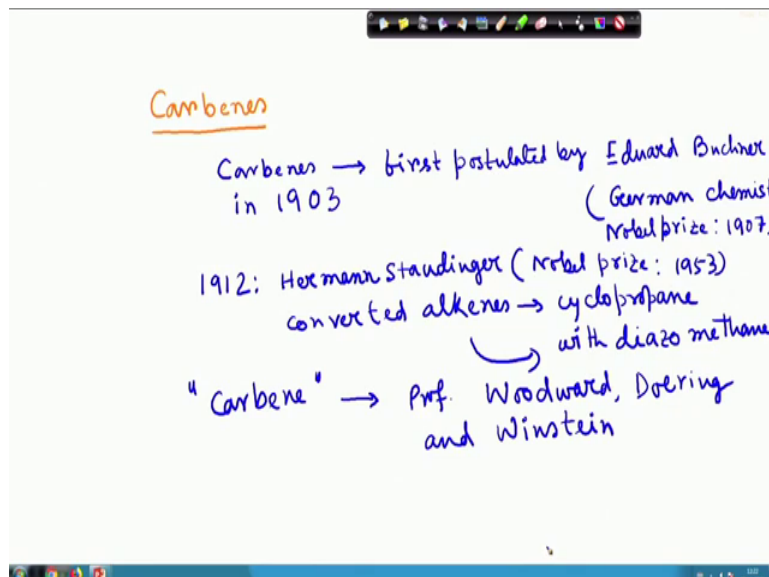 Carbenes
Carbenes → first postulated by Eduard Buchner
in 1903
(German chemist
Nobel prize: 1907,
1912: Hermann Staudinger (Nobel prize: 1953)
converted alkenes → cyclopropane
with diazo methane
"Carbene" → Prof. Woodward, Doering
and Winstein